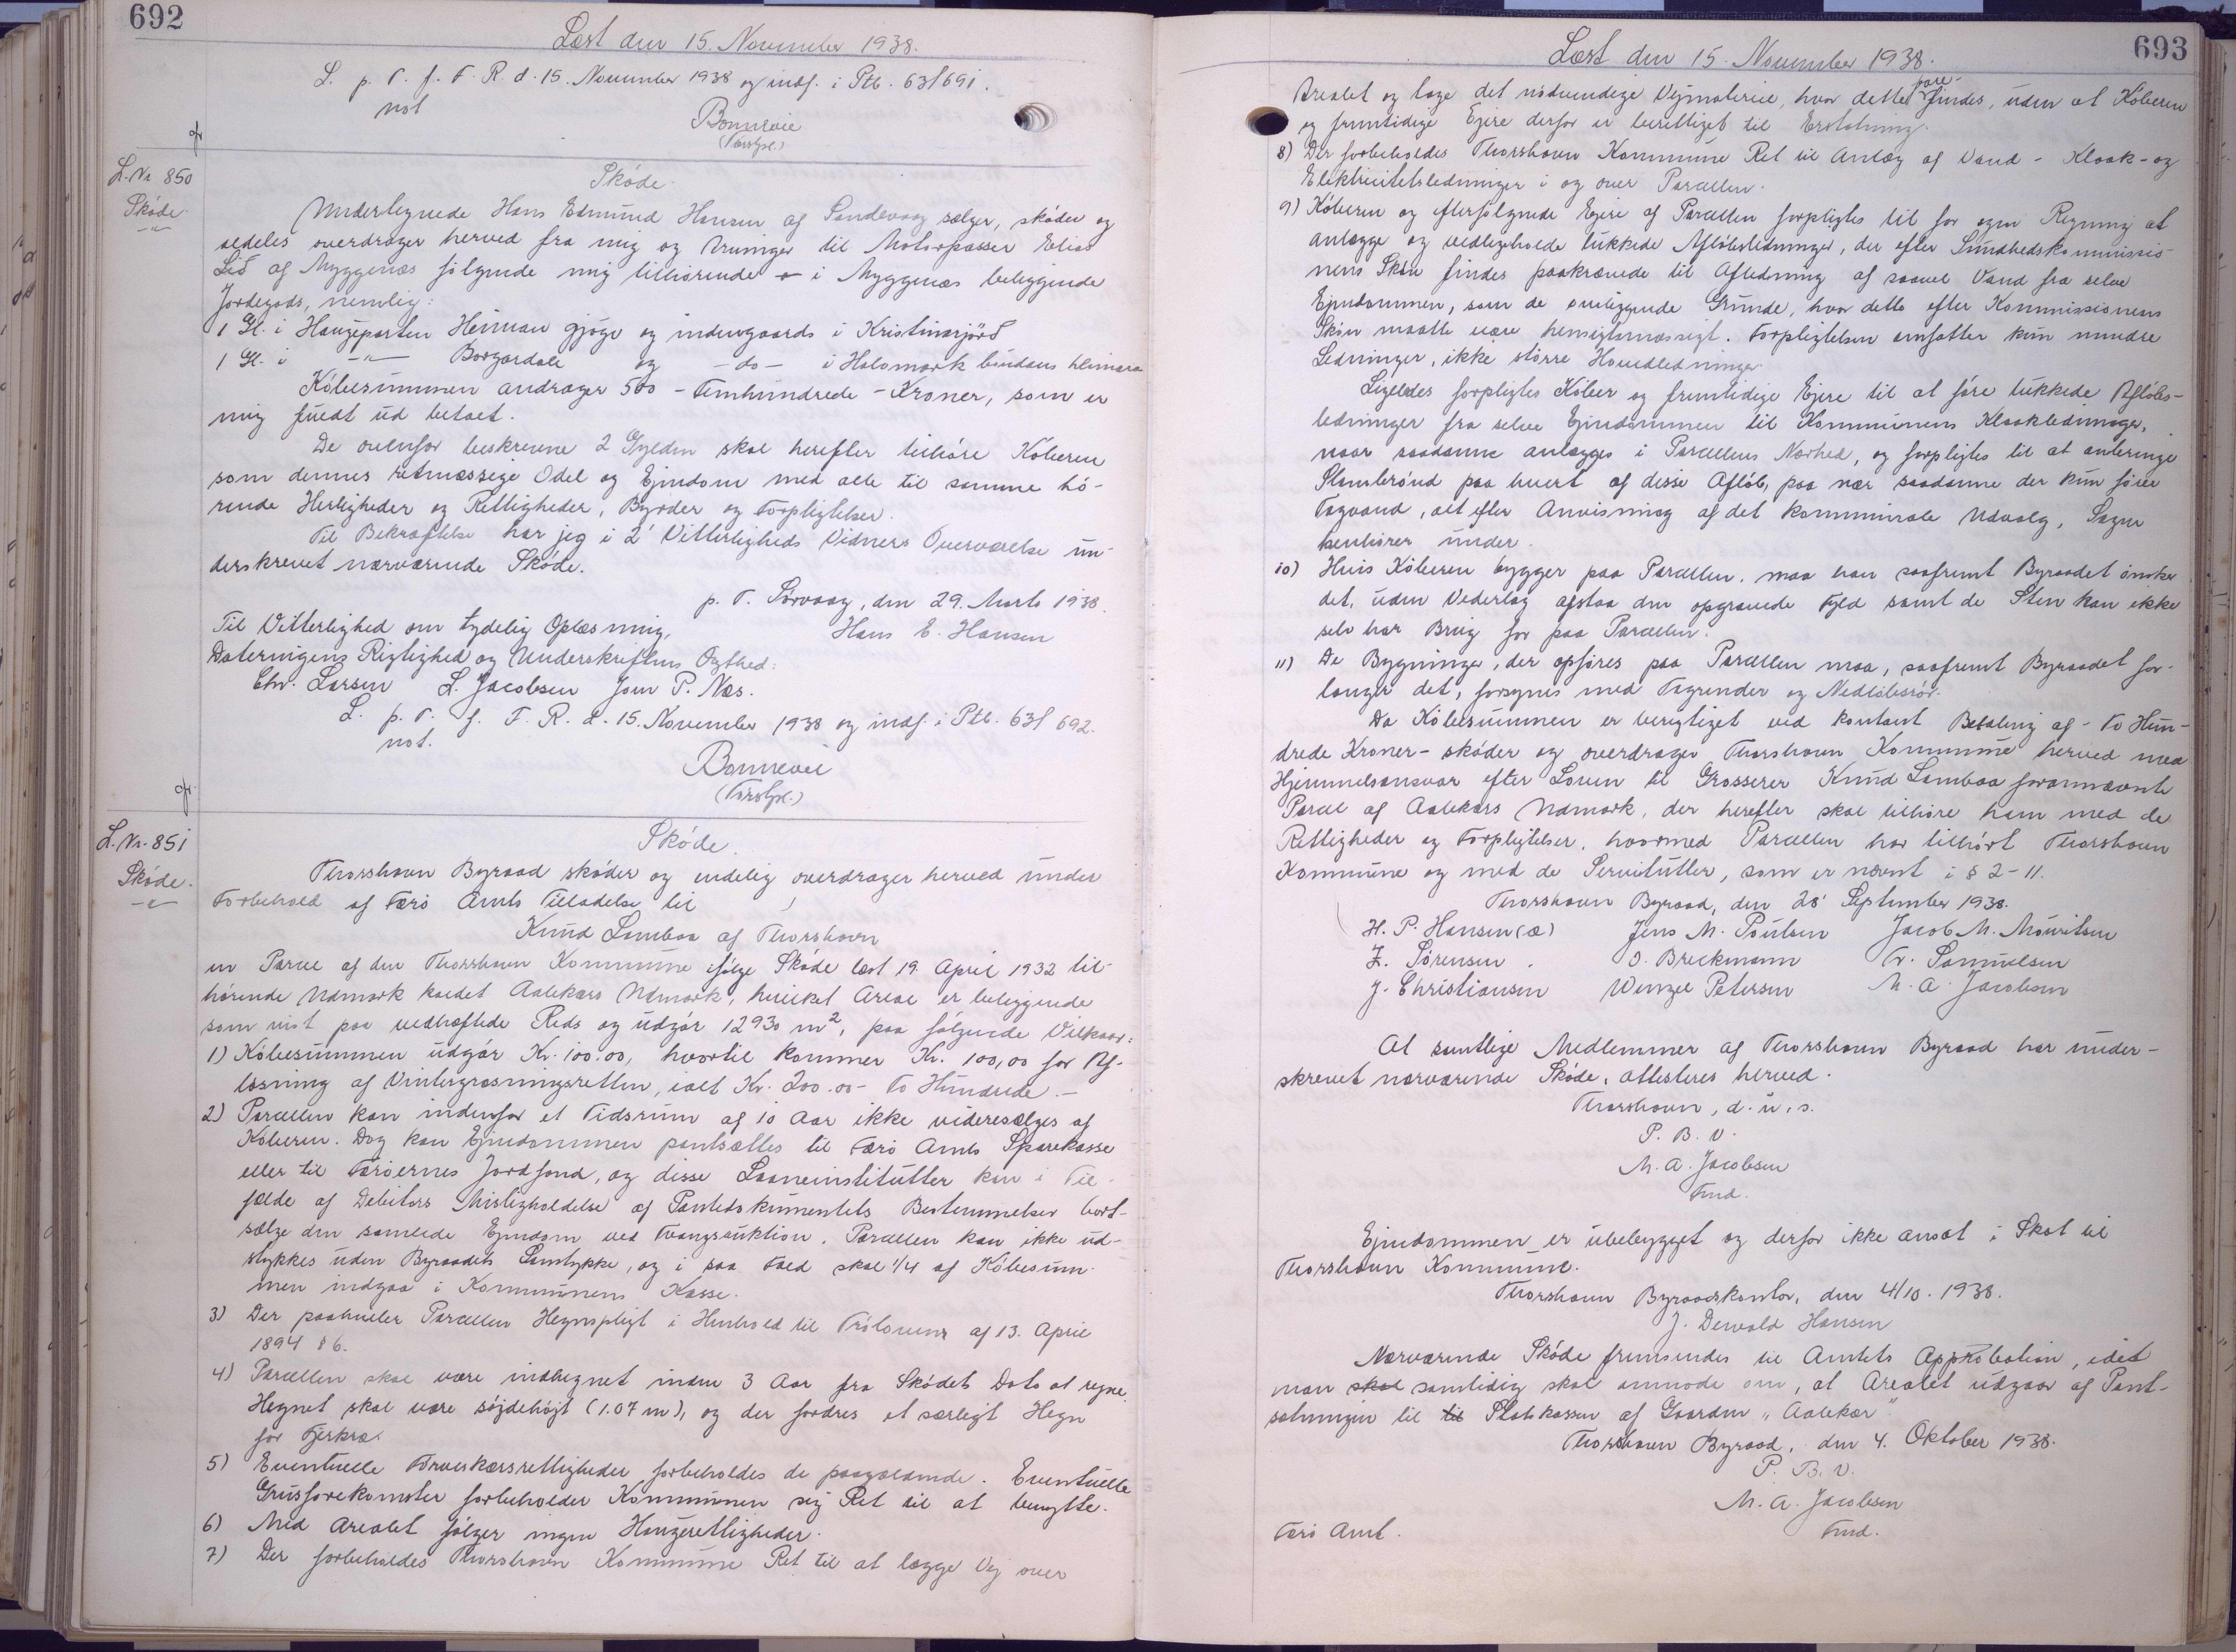 692
Læst den 15. November 1938.
L. p. T. f. F. R. d. 15. November 1938 og indf. i Ptb. 63f 691.
not
Bonnevie
(Færøsk.)
L. Nr 850
Skøde.
Skøde.
Undertegnede Hans Edmund Hansen af Sandevaag sælger, skøder og
aldeles overdrager herved fra mig og Arvinger til Motorpasser Elias
Lid af Myggenæs følgende mig tilhørende i Myggenæs beliggende
Jordegods, nemlig:
1 Gl. i Haugeparten Heiman gjógv og indengaards i Kristinarjørð
1 Gl. i -"- Borgardali og -do- i Halsmørk bøndans heimara
Købesummen andrager 500 - Femhundrede - Kroner, som er
mig fuldt ud betalt.
De ovenfor beskrevne 2 Gylden skal herefter tilhøre Køberen
som dennes retmæssige Odel og Ejendom med alle til samme hø-
rende Herligheder og Rettigheder, Byrder og Forpligtelser.
Til Bekræftelse har jeg i 2 Vitterligheds Vidners Overværelse un-
derskrevet nærværende Skøde.
p. T. Sørvaag, den 29. Marts 1938.
Til Vitterlighed om tydelig Oplæsning, Hans E. Hansen
Dateringens Rigtighed og Underskriftens Ægthed:
Chr. Larsen L. Jacobsen Joen P. Næs.
L. p. T. f. F. R. d. 15. November 1938 og indf. i Ptb. 63f 692.
not.
Bonnevie
(Færøsk.)
L. Nr. 851
Skøde.
Skøde.
Thorshavn Byraad skøder og endelig overdrager herved under
Forbehold af Færø Amts Tilladelse til
Knud Lamhaa af Thorshavn
en Parcel af den Thorshavn Kommune ifølge Skøde læst 19. April 1932 til-
hørende Udmark kaldet Aalekærs Udmark, hvilket Areal er beliggende
som vist paa vedhæftede Rids og udgør 1293o m², paa følgende Vilkaar:
1) Købesummen udgør Kr. 100.00, hvortil kommer Kr. 100,00 for Af-
løsning af Vintergræsningsretten, ialt Kr. 200.00 - To Hundrede. -
2) Parcellen kan indenfor et Tidsrum af 10 Aar ikke videresælges af
Køberen. Dog kan Ejendommen pantsættes til Færø Amts Sparekasse
eller til Færøernes Jordfond, og disse Laaneinstitutter kan i Til-
fælde af Debitors Misligholdelse af Pantedokumentets Bestemmelser bort-
sælge den samlede Ejendom ved Tvangsauktion. Parcellen kan ikke ud-
stykkes uden Byraadets Samtykke, og i saa Fald skal 1/4 af Købesum-
men indgaa i Kommunens Kasse.
3) Der paahviler Parcellen Hegnspligt i Henhold til Trøloven af 13. April
1894 § 6.
4) Parcellen skal være indhegnet inden 3 Aar fra Skødets Dato at regne.
Hegnet skal være søjdehøjt (1.07 m), og der fordres et særligt Hegn
for Fjerkræ.
5) Eventuelle Tørveskærsrettigheder forbeholdes de paagældende. Eventuelle
Grusforekomster forbeholder Kommunen sig Ret til at benytte.
6) Med Arealet følger ingen Haugerettigheder.
7) Der forbeholdes Thorshavn Kommune Ret til at lægge Vej over
693
Læst den 15. November 1938.
Arealet og tage det nødvendige Vejmateriel, hvor dette fore-findes, uden at Køberen
og fremtidige Ejere derfor er berettiget til Erstatning.
8) Der forbeholdes Thorshavn Kommune Ret til Anlæg af Vand - Kloak - og
Elektricitetsledninger i og over Parcellen.
9) Køberen og efterfølgende Ejere af Parcellen forpligtes til for egen Regning at
anlægge og vedligeholde lukkede Afløbsledninger, der efter Sundhedskommissio-
nens Skøn findes paakrævede til Afledning af saavel Vand fra selve
Ejendommen, som de omliggende Grunde, hvor dette efter Kommissionens
Skøn maatte være hensigtsmæssigt. Forpligtelsen omfatter kun mindre
Ledninger, ikke større Hovedledninger.
Ligeledes forpligtes Køber og fremtidige Ejere til at føre lukkede Afløbs-
ledninger fra selve Ejendommen til Kommunens Kloakledninger,
naar saadanne anlægges i Parcellens Nærhed, og forpligtes til at anbringe
Slambrønd paa hvert af disse Afløb, paa nær saadanne der kun fører
Tagvand, alt efter Anvisning af det kommunale Udvalg, Sagen
henhører under.
10) Hvis Køberen bygger paa Parcellen, maa han saafremt Byraadet ønsker
det, uden Vederlag afstaa den opgravede Fyld samt de Sten han ikke
selv har Brug for paa Parcellen.
11) De Bygninger, der opføres paa Parcellen maa, saafremt Byraadet for-
langer det, forsynes med Tagrender og Nedløbsrør.
Da Købesummen er berigtiget ved kontant Betaling af - To Hun-
drede Kroner - skøder og overdrager Thorshavn Kommune herved med
Hjemmelsansvar efter Loven til Grosserer Knud Lamhaa forannævnte
Parcel af Aalekærs Udmark, der herefter skal tilhøre ham med de
Rettigheder og Forpligtelser, hvormed Parcellen har tilhørt Thorshavn
Kommune og med de Servitutter, som er nævnt i § 2 - 11.
Thorshavn Byraad, den 28' September 1938.
H. P. Hansen (æ) Jens M. Poulsen Jacob M. Mouritsen
Z. Sørensen. O. Breckmann Tr. Samuelsen
J. Christiansen Wenzel Petersen M. A. Jacobsen
At samtlige Medlemmer af Thorshavn Byraad har under-
skrevet nærværende Skøde, attesteres herved.
Thorshavn, d. u. s.
P. B. V.
M. A. Jacobsen
Fmd.
Ejendommen er ubebygget og derfor ikke ansat i Skat til
Thorshavn Kommune.
Thorshavn Byraadskontor, den 4/10. 1938.
J. Dewald Hansen
Nærværende Skøde fremsendes til Amtets Approbation, idet
man skal samtidig skal anmode om, at Arealet udgaar af Pant-
sætningen til til Statskassen af Gaarden „Aalekær"
Thorshavn Byraad, den 4. Oktober 1938.
P. B. V.
M. A. Jacobsen
Færø Amt. Fmd.